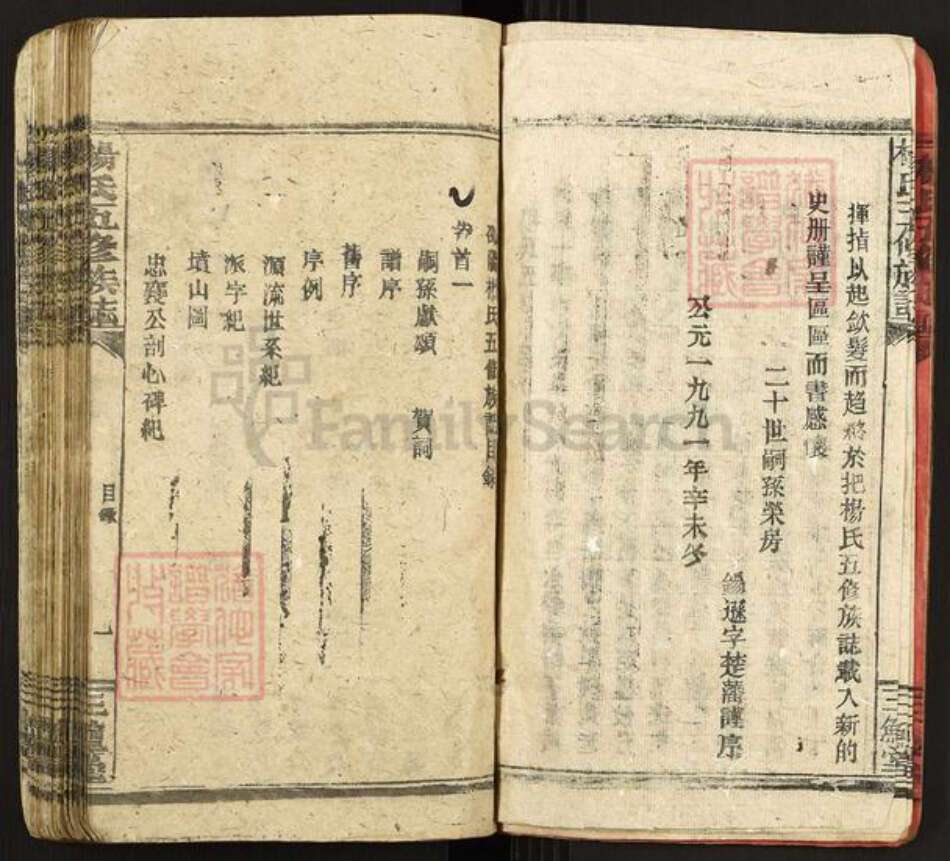 揮指以起歛髮而趨終於把楊氏五修族誌載入新的
史册謹呈區區而書感懷
二十世嗣孫榮房
錫遯字楚藩謹序
公元一九九一年辛未冬
楊氏五修族誌
三鱣堂
楊氏五修族誌目錄
卷首一
嗣孫獻頌 賀詞
譜序
舊序
序例
源流世系紀
派字紀
墳山圖
忠襄公剖心碑紀
目錄
一
楊氏五修族誌
三鱣堂
FamilySearch